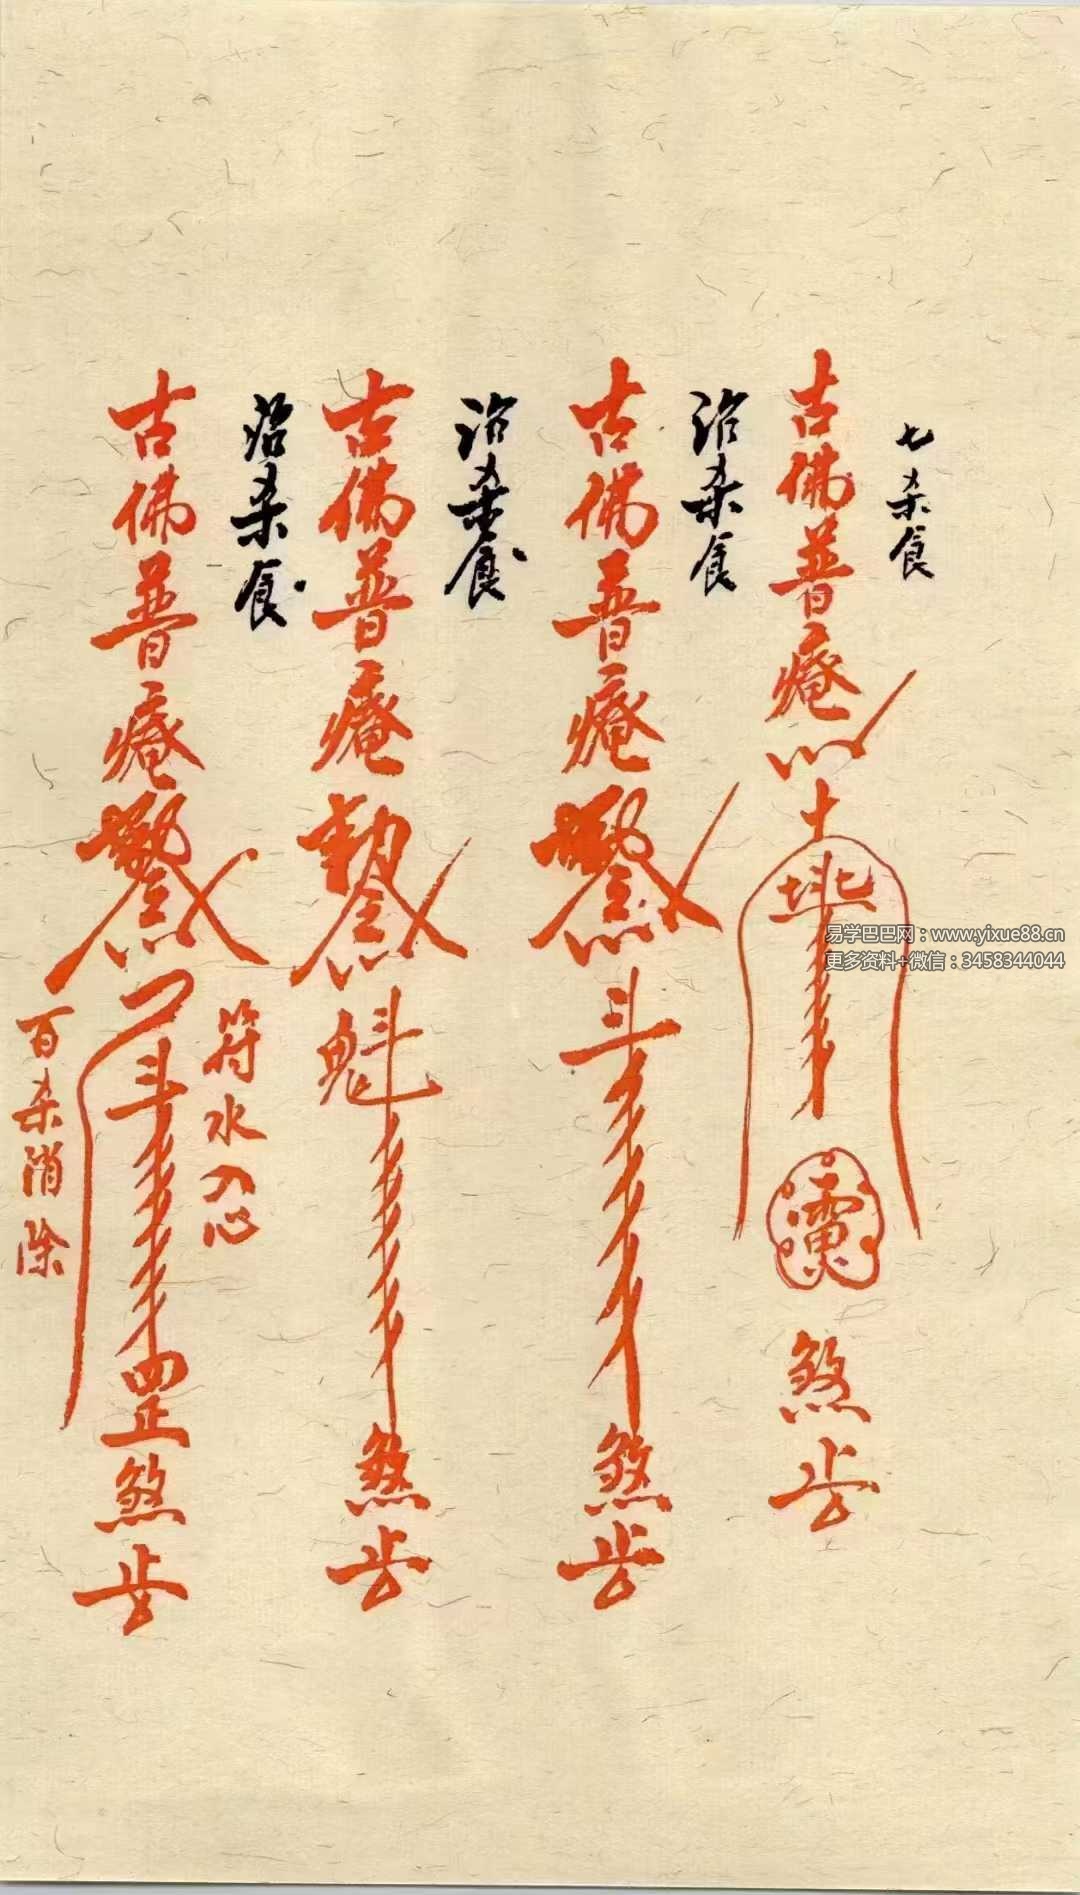 七杀食
古佛普庵
土
煞
治杀食
古佛普庵
斗
煞
治杀食
古佛普庵
魁
煞
治杀食
古佛普庵
斗
罡
煞
符水入心
百杀消除
易学巴巴网：www.yixue88.cn
更多资料+微信：3458344044